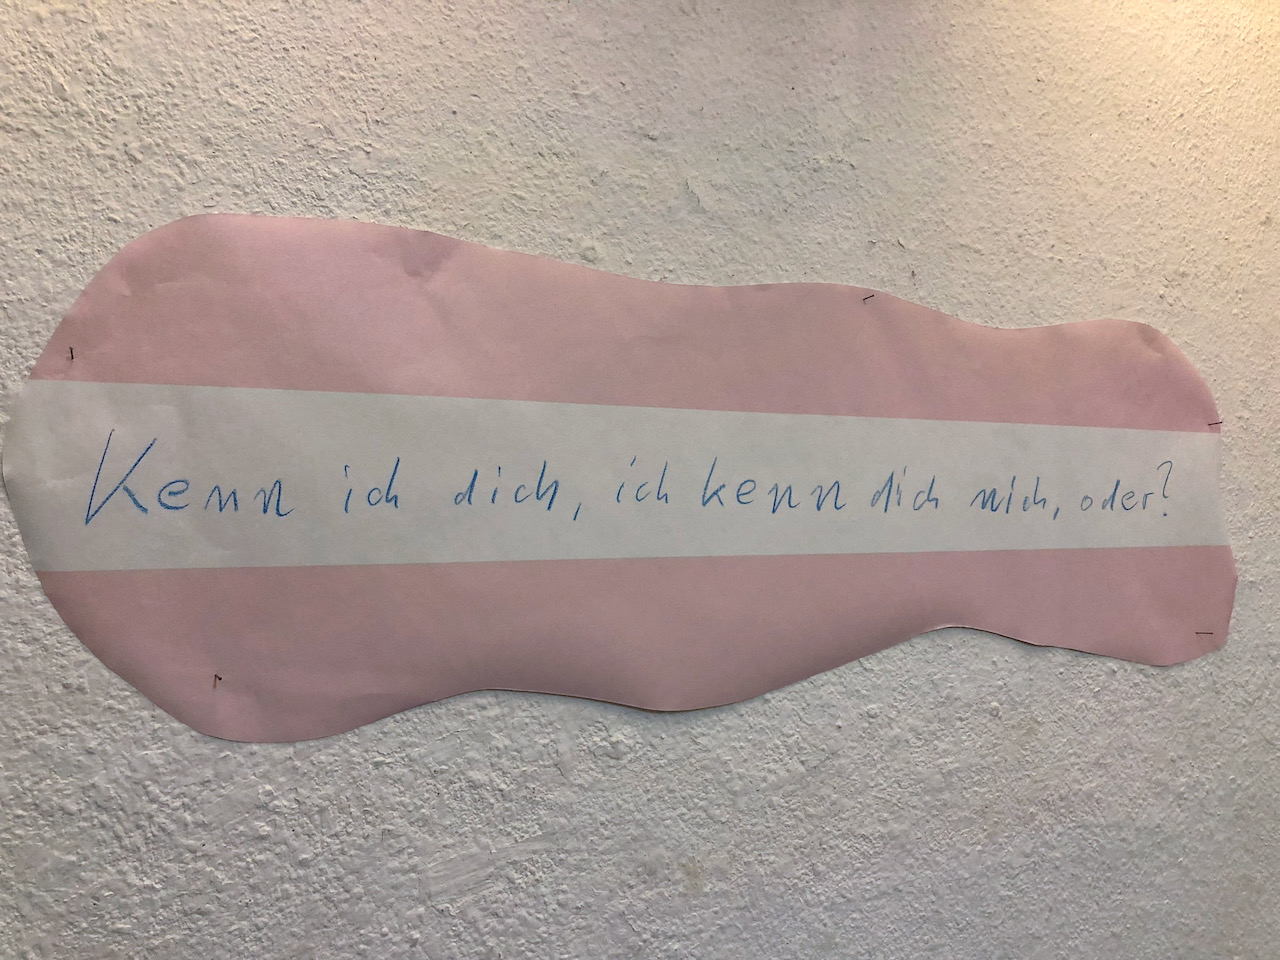 Kenn ich dich, ich kenn dich nich, oder?